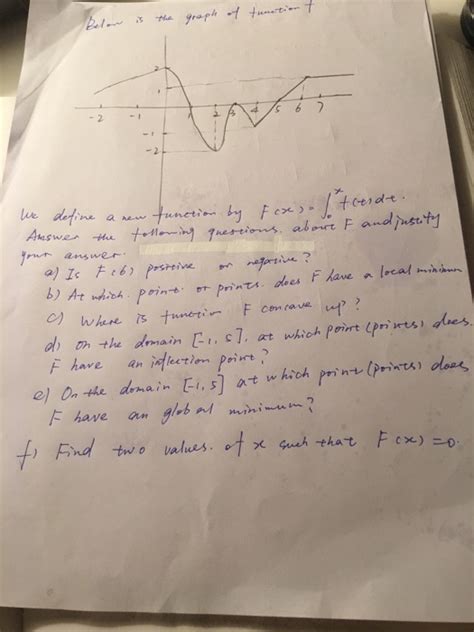 Below is the graph of function f
2
1
-2 -1 1 2 3 4 5 6 7
-1
-2
We define a new function by F(x) = ∫₀ˣ f(t)dt.
Answer the following questions about F and justify
your answer.
a) Is F(6) positive or negative?
b) At which point or points does F have a local minimum
c) Where is function F concave up?
d) On the domain [-1, 5], at which point (points) does
F have an inflection point?
e) On the domain [-1, 5] at which point (points) does
F have an global minimum?
f) Find two values of x such that F(x) = 0.